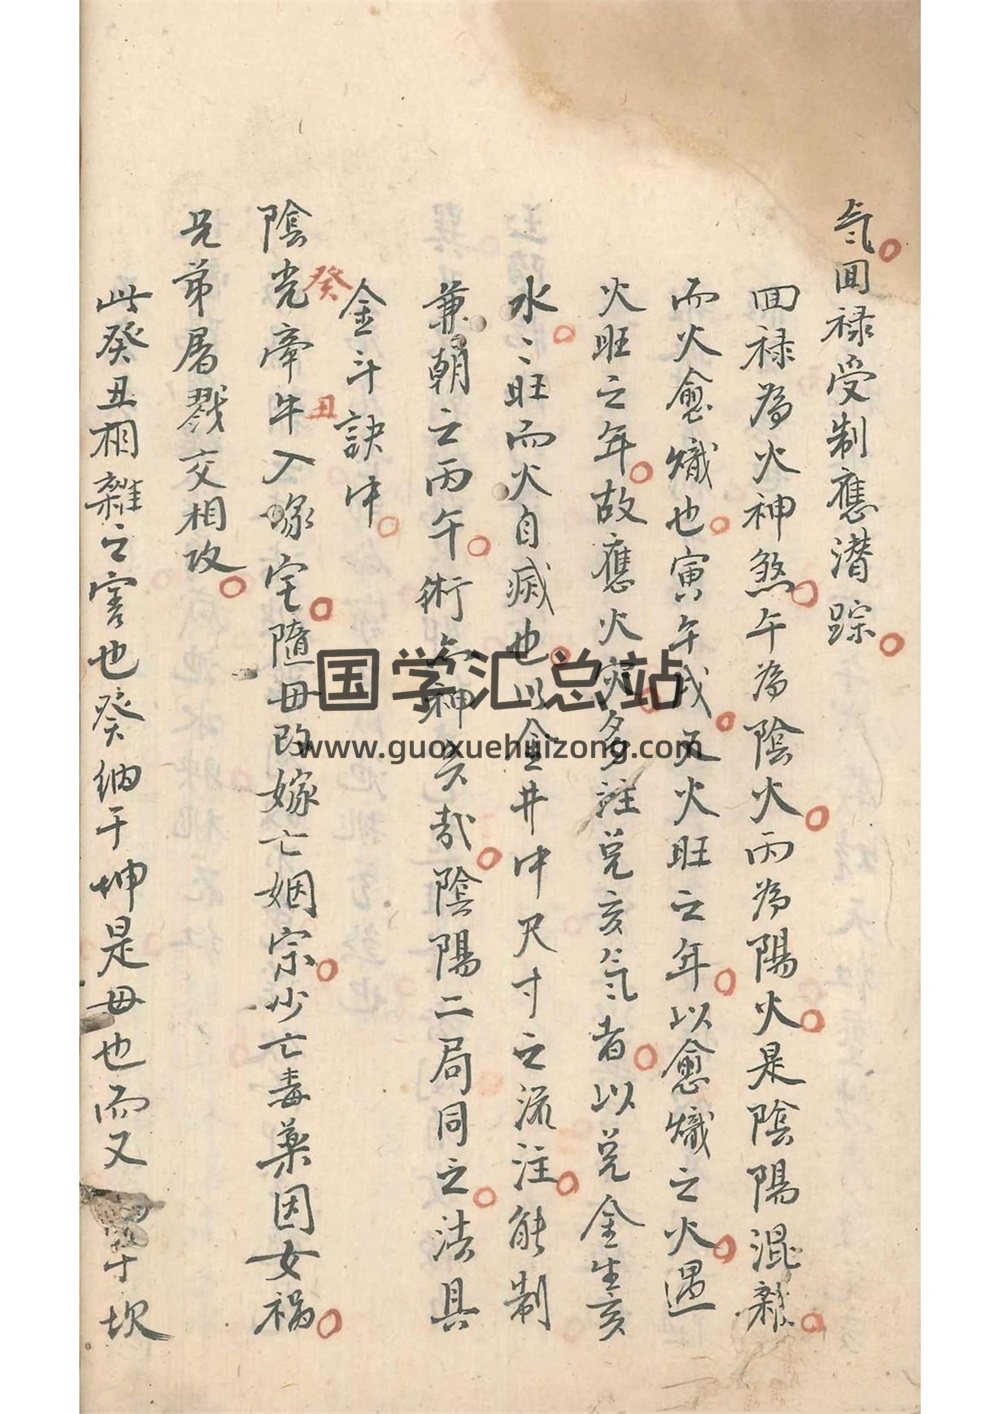 气囬禄受制應潜踪
囬禄為火神煞午為陰火丙為陽火是陰陽混雜
而火愈熾也寅午戌五火旺之年以愈熾之火遇
火旺之年故應火灾多注兑亥气者以兑金生亥
水〻旺而火自滅也以金井中尺寸之流注能制
兼朝之丙午術亦神矣哉陰陽二局同之法具
金斗訣中
陰光牽牛入啄宅隨毋改嫁亡姻宗少亡毒薬因女禍
癸
丑
兄弟屠戮交相攻
此癸丑相雜之害也癸納于坤是毋也而又 于坎
国学汇总站
www.guoxuehuizong.com